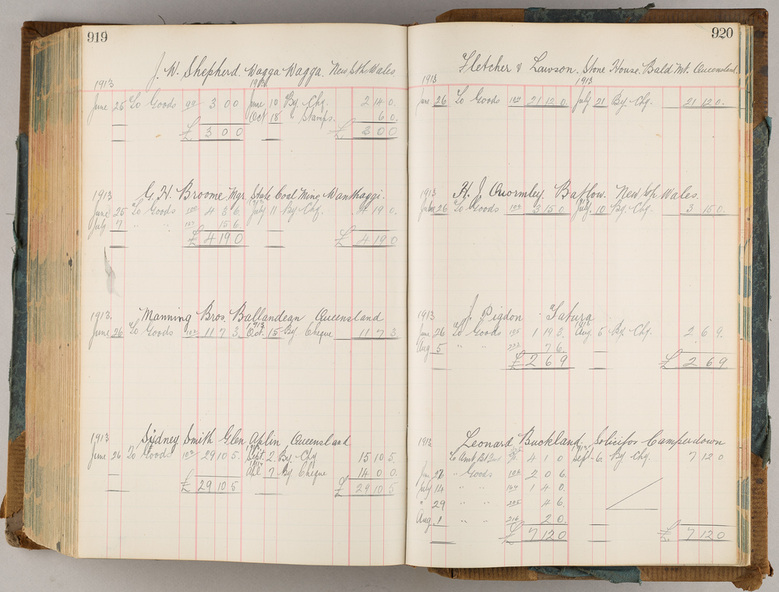 919
J. W. Shepherd. Wagga Wagga. New Sth Wales
1913 1913
June 25 To Goods 192 3 0 0 June 10 By Chq. 2 14 0
Oct 18 " Stamps. 6 0
£ 3 0 0 £ 3 0 0
G. H. Broome Mgr. State Coal Mine Wonthaggi.
1913
June 25 To Goods 4 3 6 July 11 By Chq. 4 19 0
July 7 " " 15 6
£ 4 19 0 £ 4 19 0
Manning Bros. Ballandean Queensland
1913 1913
June 26 To Goods 11 7 3 Oct. 15 By Cheque 11 7 3
Sydney Smith Glen Aplin Queensland
1913
June 26 To Goods 29 10 5 2 By Chq 15 10 5
7 By Cheque 14 0 0
£ 29 10 5 £ 29 10 5
920
Fletcher & Lawson. Stone House. Bald Mt. Queensland.
1913 1913
June 26 To Goods 21 12 0 July 21 By Chq. 21 12 0
1913 H. J. Batlow. New Sth Wales.
26 To Goods 3 15 0 July 10 By Chq. 3 15 0
1913 J. Pigdon
June 26 To Goods 1 19 3 Aug 5 By Chq. 2 6 9
Aug 5 " " 7 6
£ 2 6 9 £ 2 6 9
1913 Leonard Buckland Camperdown
To 4 1 0 Sep. 6 By Chq. 7 12 0
June 27 " Goods 2 0 6
July 14 " " 1 4 0
" 29 " " 4 6
Aug 1 " " 2 0
£ 7 12 0 £ 7 12 0